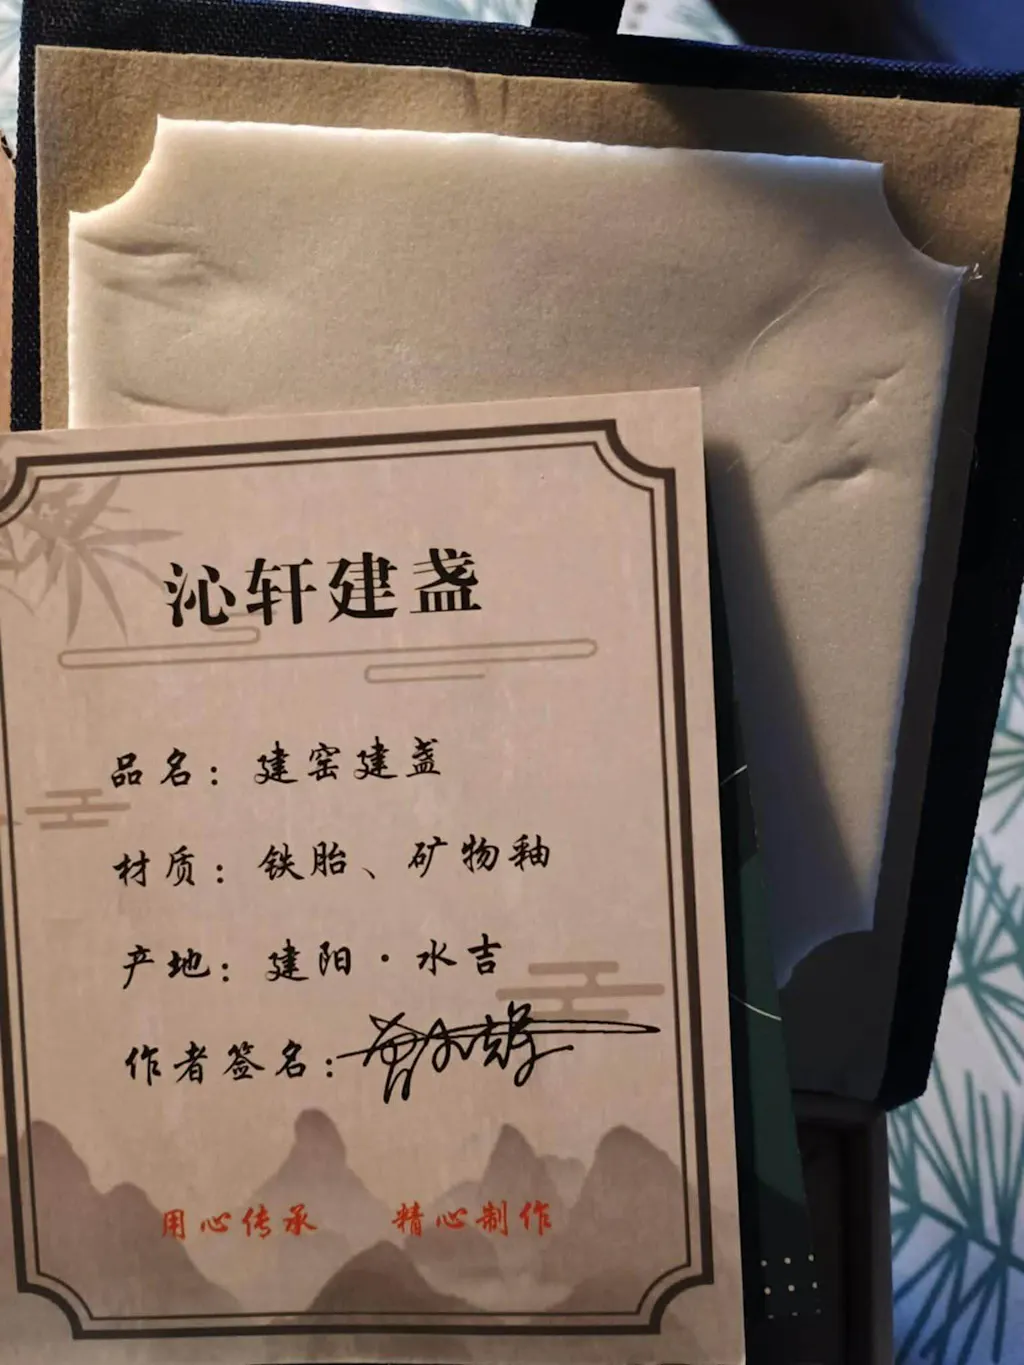 沁轩建盏
品名：建窑建盏
材质：铁胎、矿物釉
产地：建阳·水吉
作者签名：
用心传承 精心制作